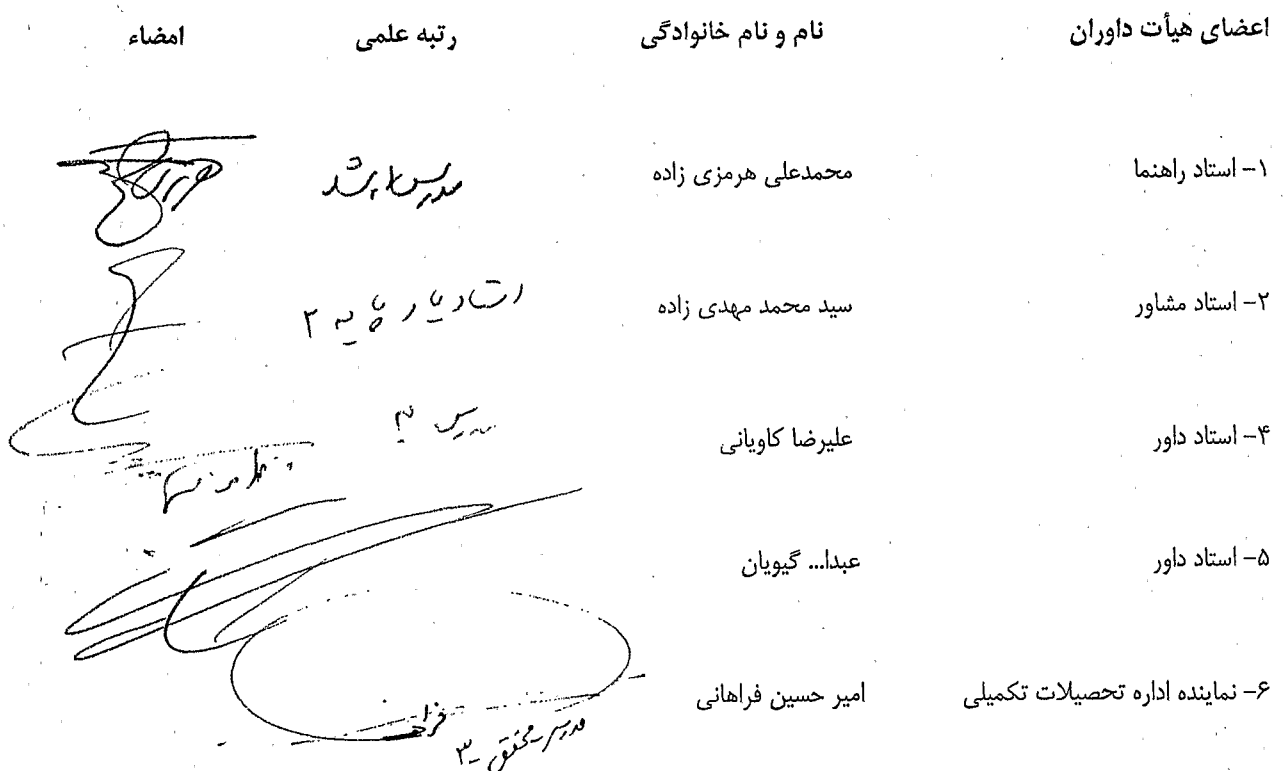 اعضای هیأت داوران نام و نام خانوادگی رتبه علمی امضاء
۱- استاد راهنما محمدعلی هرمزی زاده مدرس ارشد
۲- استاد مشاور سید محمد مهدی زاده استادیار پایه ۲
۴- استاد داور علیرضا کاویانی مدرس
۵- استاد داور عبدا... گیویان
۶- نماینده اداره تحصیلات تکمیلی امیر حسین فراهانی
مدرس محقق - ۳